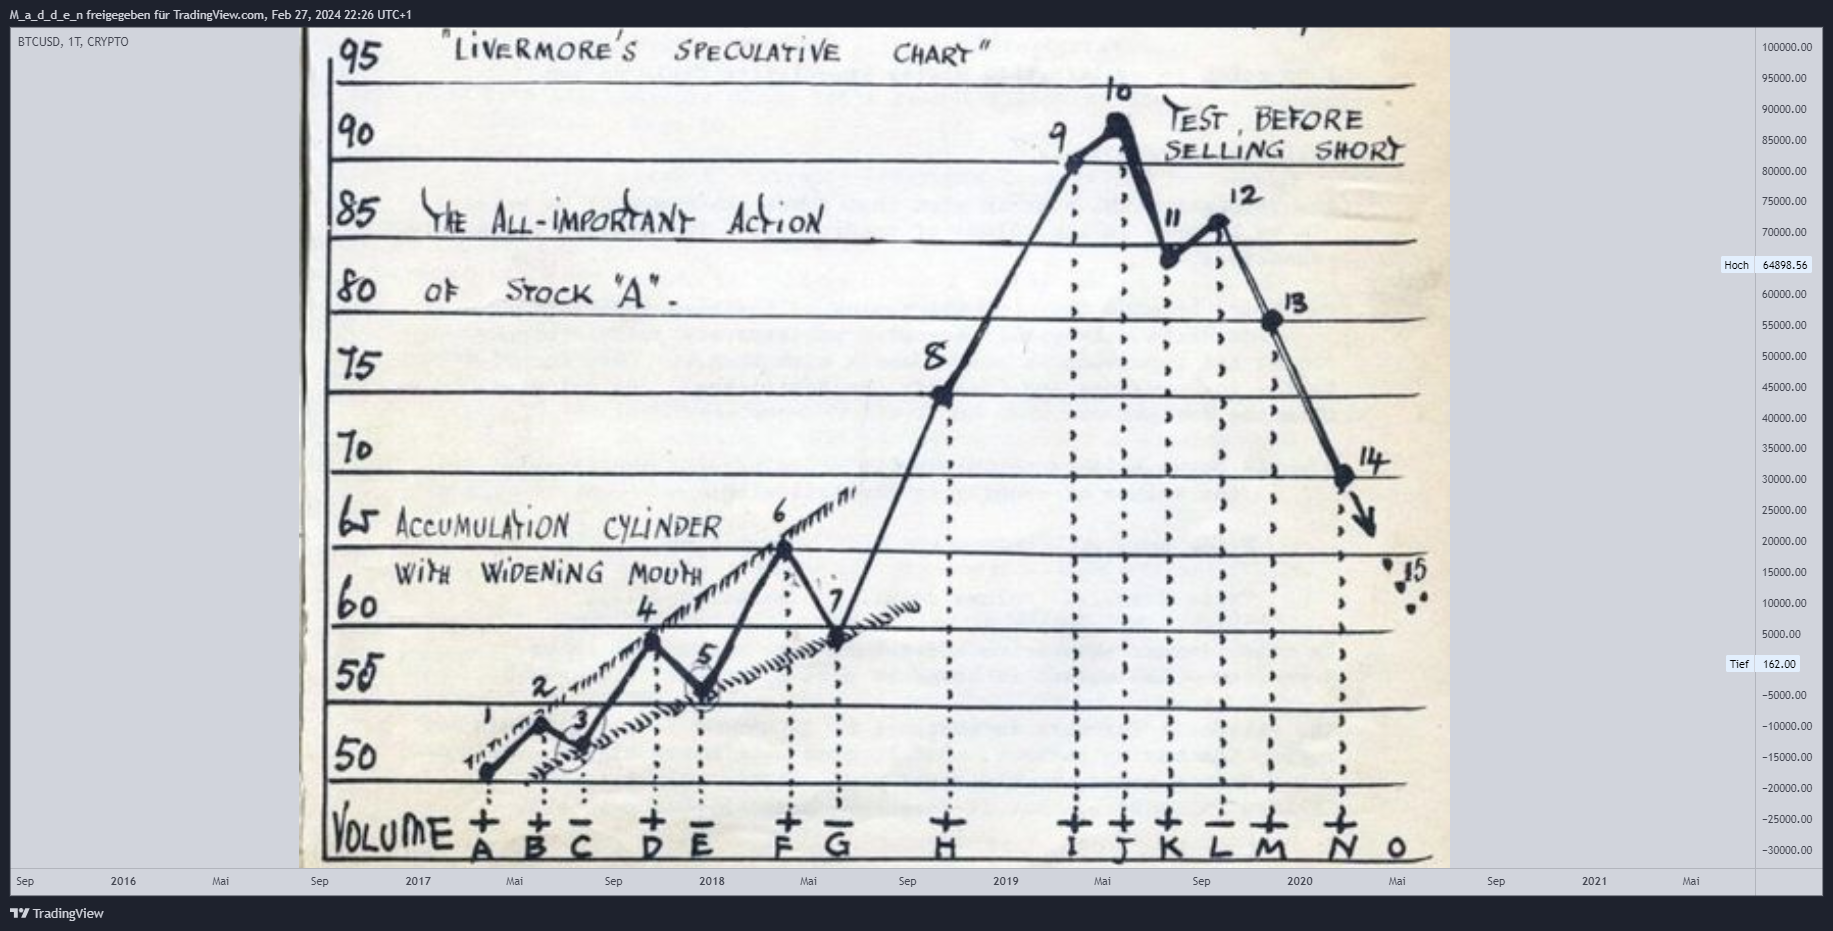 M_a_d_d_e_n freigegeben für TradingView.com, Feb 27, 2024 22:26 UTC+1
BTCUSD, 1T, CRYPTO
"LIVERMORE'S SPECULATIVE CHART"
95
90
85
80
75
70
65
60
55
50
TEST, BEFORE
SELLING SHORT
THE ALL-IMPORTANT ACTION
OF STOCK "A".
ACCUMULATION CYLINDER
WITH WIDENING MOUTH
1
2
3
4
5
6
7
8
9
10
11
12
13
14
15
VOLUME + + - + - + - + + + + - + +
A B C D E F G H I J K L M N O
100000.00
95000.00
90000.00
85000.00
80000.00
75000.00
70000.00
Hoch 64898.56
60000.00
55000.00
50000.00
45000.00
40000.00
35000.00
30000.00
25000.00
20000.00
15000.00
10000.00
5000.00
Tief 162.00
−5000.00
−10000.00
−15000.00
−20000.00
−25000.00
−30000.00
Sep 2016 Mai Sep 2017 Mai Sep 2018 Mai Sep 2019 Mai Sep 2020 Mai Sep 2021 Mai
TradingView